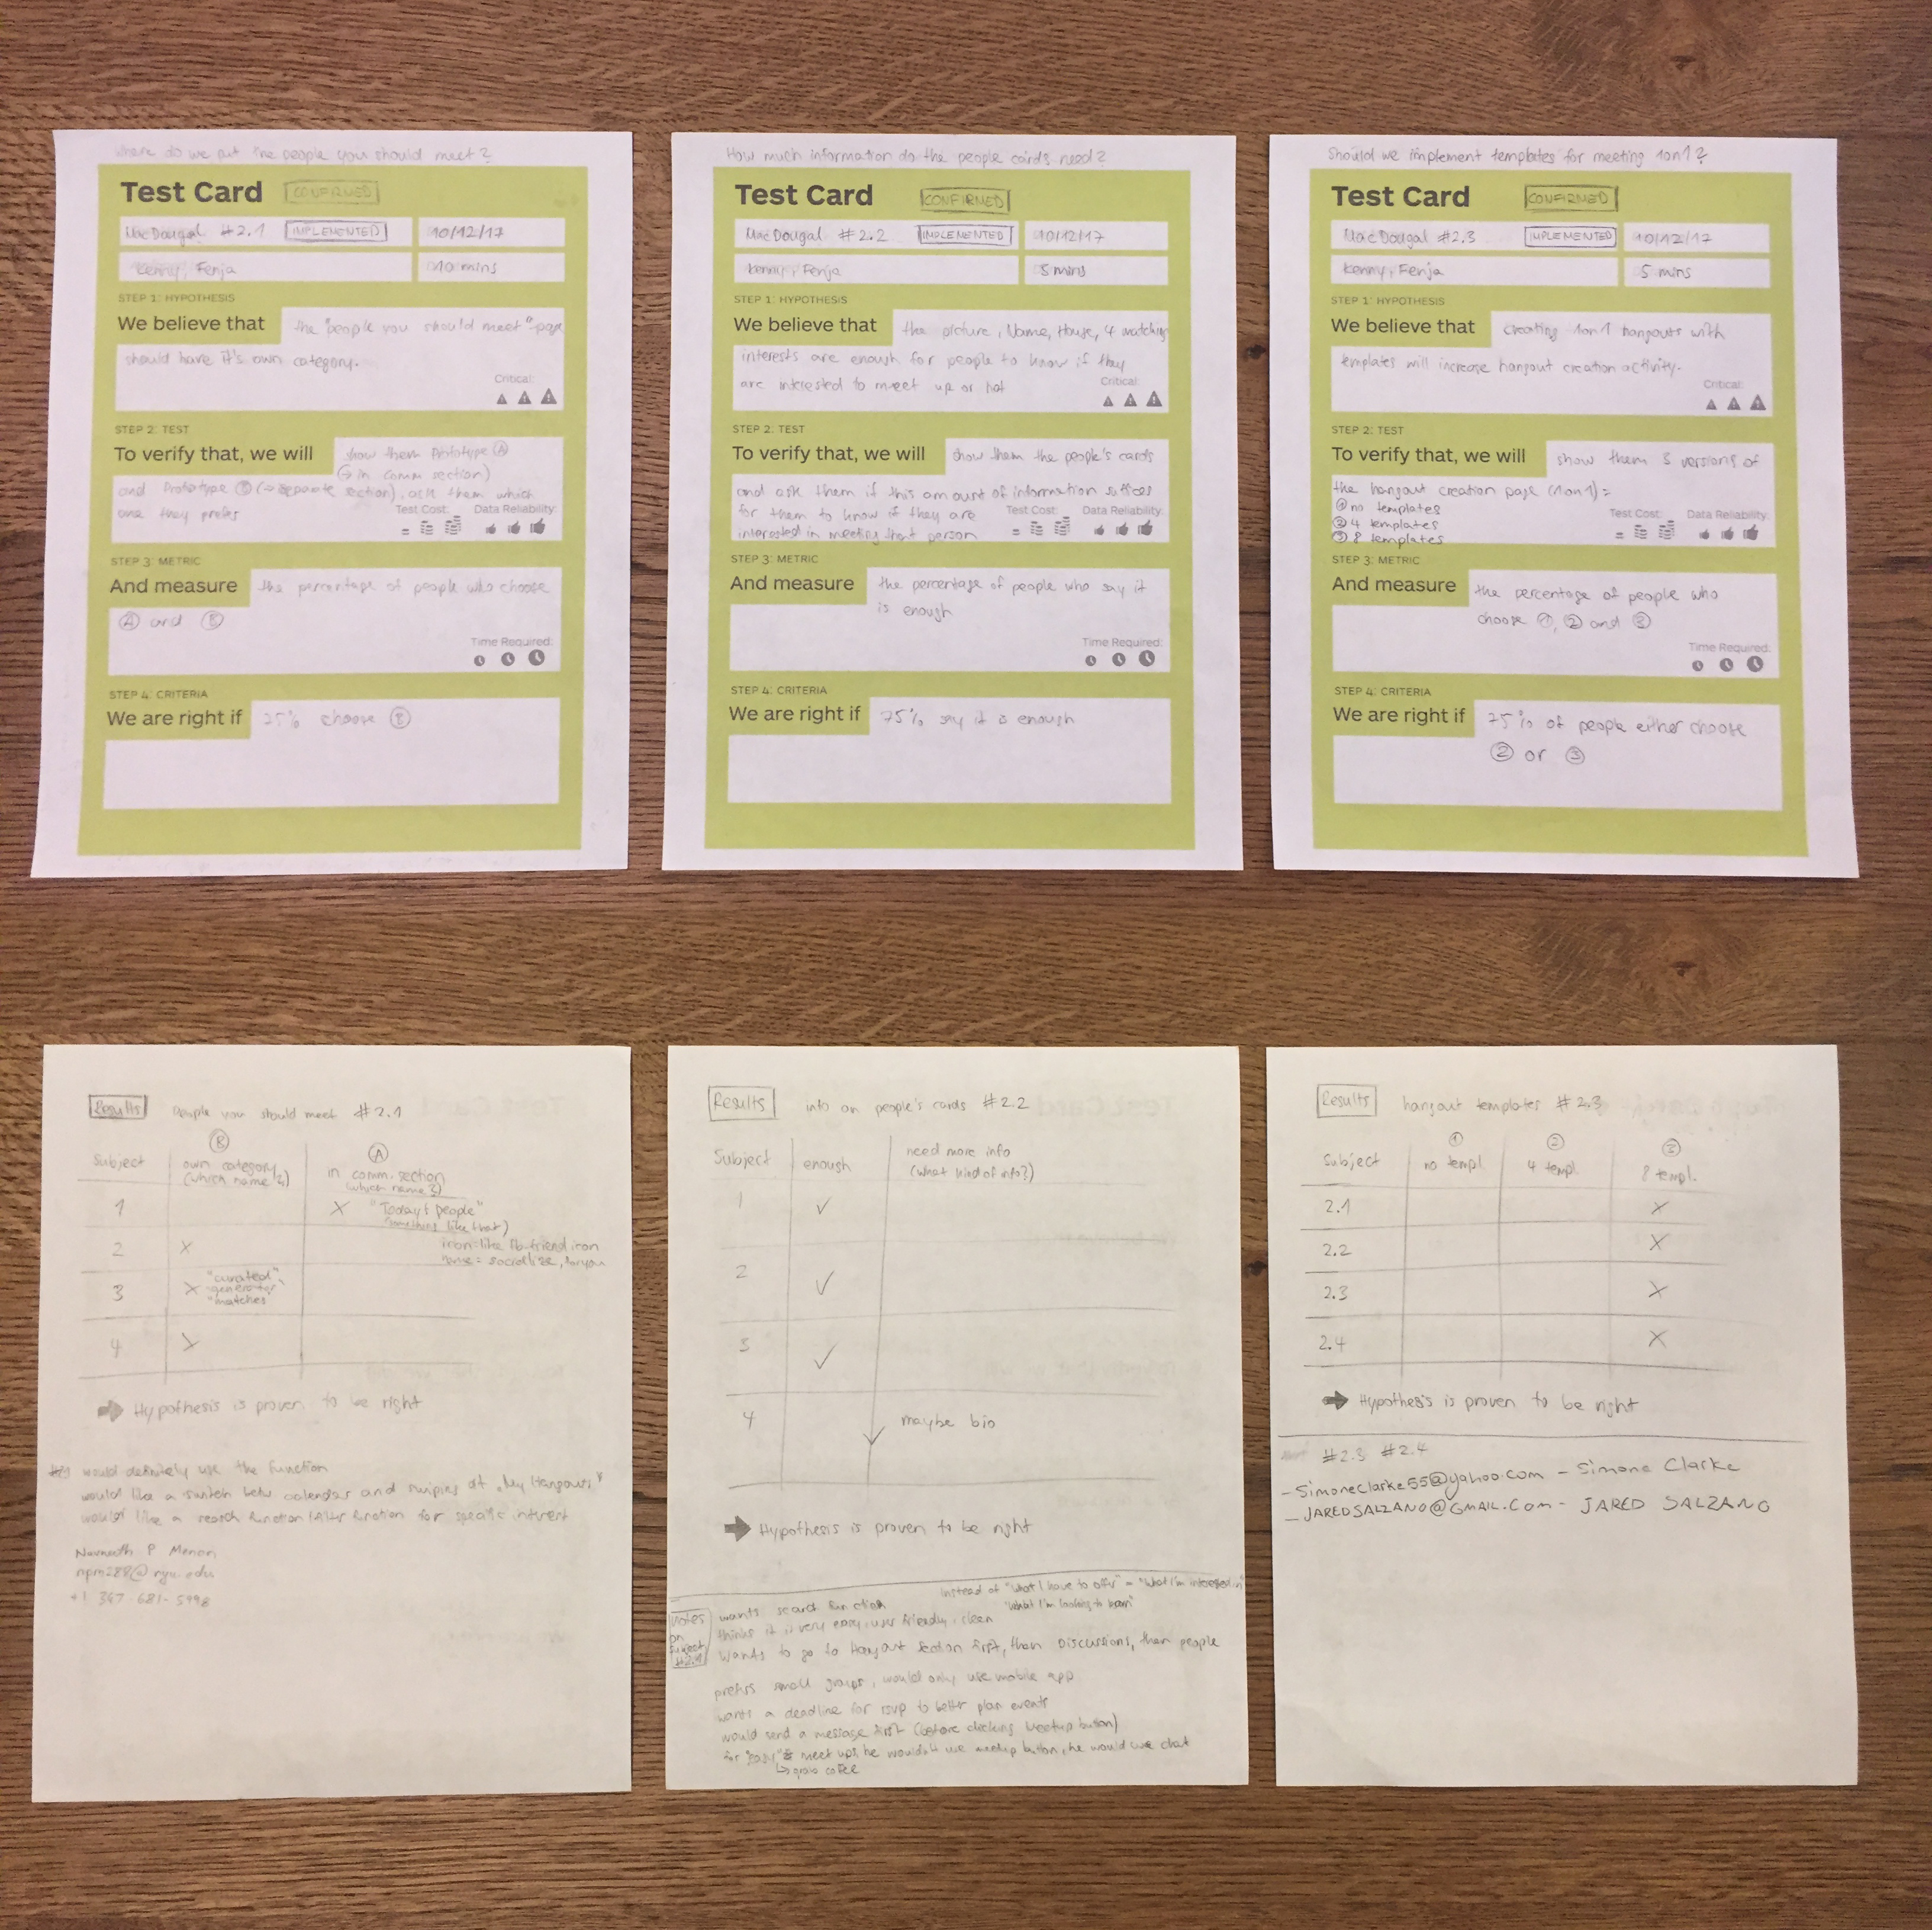 Where do we put the people you should meet?
Test Card CONFIRMED
MacDougal #2.1 IMPLEMENTED 10/12/17
Kenny, Fenja 10 mins
STEP 1: HYPOTHESIS
We believe that the "people you should meet"-page
should have it's own category.
Critical:
STEP 2: TEST
To verify that, we will show them Prototype A
(→ in comm section)
and Prototype B (→ separate section), ask them which
one they prefer
Test Cost: Data Reliability:
STEP 3: METRIC
And measure the percentage of people who choose
A and B
Time Required:
STEP 4: CRITERIA
We are right if 75% choose B
How much information do the people cards need?
Test Card CONFIRMED
MacDougal #2.2 IMPLEMENTED 10/12/17
Kenny, Fenja 5 mins
STEP 1: HYPOTHESIS
We believe that the picture, Name, House, 4 matching
interests are enough for people to know if they
are interested to meet up or not
Critical:
STEP 2: TEST
To verify that, we will show them the people's cards
and ask them if this amount of information suffices
for them to know if they are
interested in meeting that person
Test Cost: Data Reliability:
STEP 3: METRIC
And measure the percentage of people who say it
is enough
Time Required:
STEP 4: CRITERIA
We are right if 75% say it is enough
Should we implement templates for meeting 1on1?
Test Card CONFIRMED
MacDougal #2.3 IMPLEMENTED 10/12/17
Kenny, Fenja 5 mins
STEP 1: HYPOTHESIS
We believe that creating 1on1 hangouts with
templates will increase hangout creation activity.
Critical:
STEP 2: TEST
To verify that, we will show them 3 versions of
the hangout creation page (1on1):
① no templates
② 4 templates
③ 8 templates
Test Cost: Data Reliability:
STEP 3: METRIC
And measure the percentage of people who
choose ①, ② and ③
Time Required:
STEP 4: CRITERIA
We are right if 75% of people either choose
② or ③
Results People you should meet #2.1
B A
Subject own category (which name?) in comm. section (which name?)
1 X "Today's people"
(something like that)
2 X icon = like fb-friend icon
name = socialise, for you
3 X "curated" "generator" "matches"
4 X
→ Hypothesis is proven to be right
would definitely use the function
would like a switch betw calendar and swipies at "My Hangouts"
would like a search function / filter function for specific interest
Navneeth P Menon
npm288@nyu.edu
+1 347-681-5998
Results info on people's cards #2.2
Subject enough need more info
(what kind of info?)
1 ✓
2 ✓
3 ✓
4 maybe bio
→ Hypothesis is proven to be right
instead of "What I have to offer" = "What I'm interested in"
"What I'm looking to learn"
Notes on subject #2.1
wants search function
thinks it is very easy, user friendly, clean
wants to go to Hangout section first, then Discussions, then people
prefers small groups, would only use mobile app
wants a deadline for rsvp to better plan events
would send a message first (before clicking Meetup button)
for "easy" meet ups, he wouldn't use meetup button, he would use chat
↳ grab coffee
Results hangout templates #2.3
① ② ③
Subject no templ. 4 templ. 8 templ.
2.1 X
2.2 X
2.3 X
2.4 X
→ Hypothesis is proven to be right
#2.3 #2.4
- Simoneclarke55@yahoo.com - Simone Clarke
- JAREDSALZANO@GMAIL.COM - JARED SALZANO